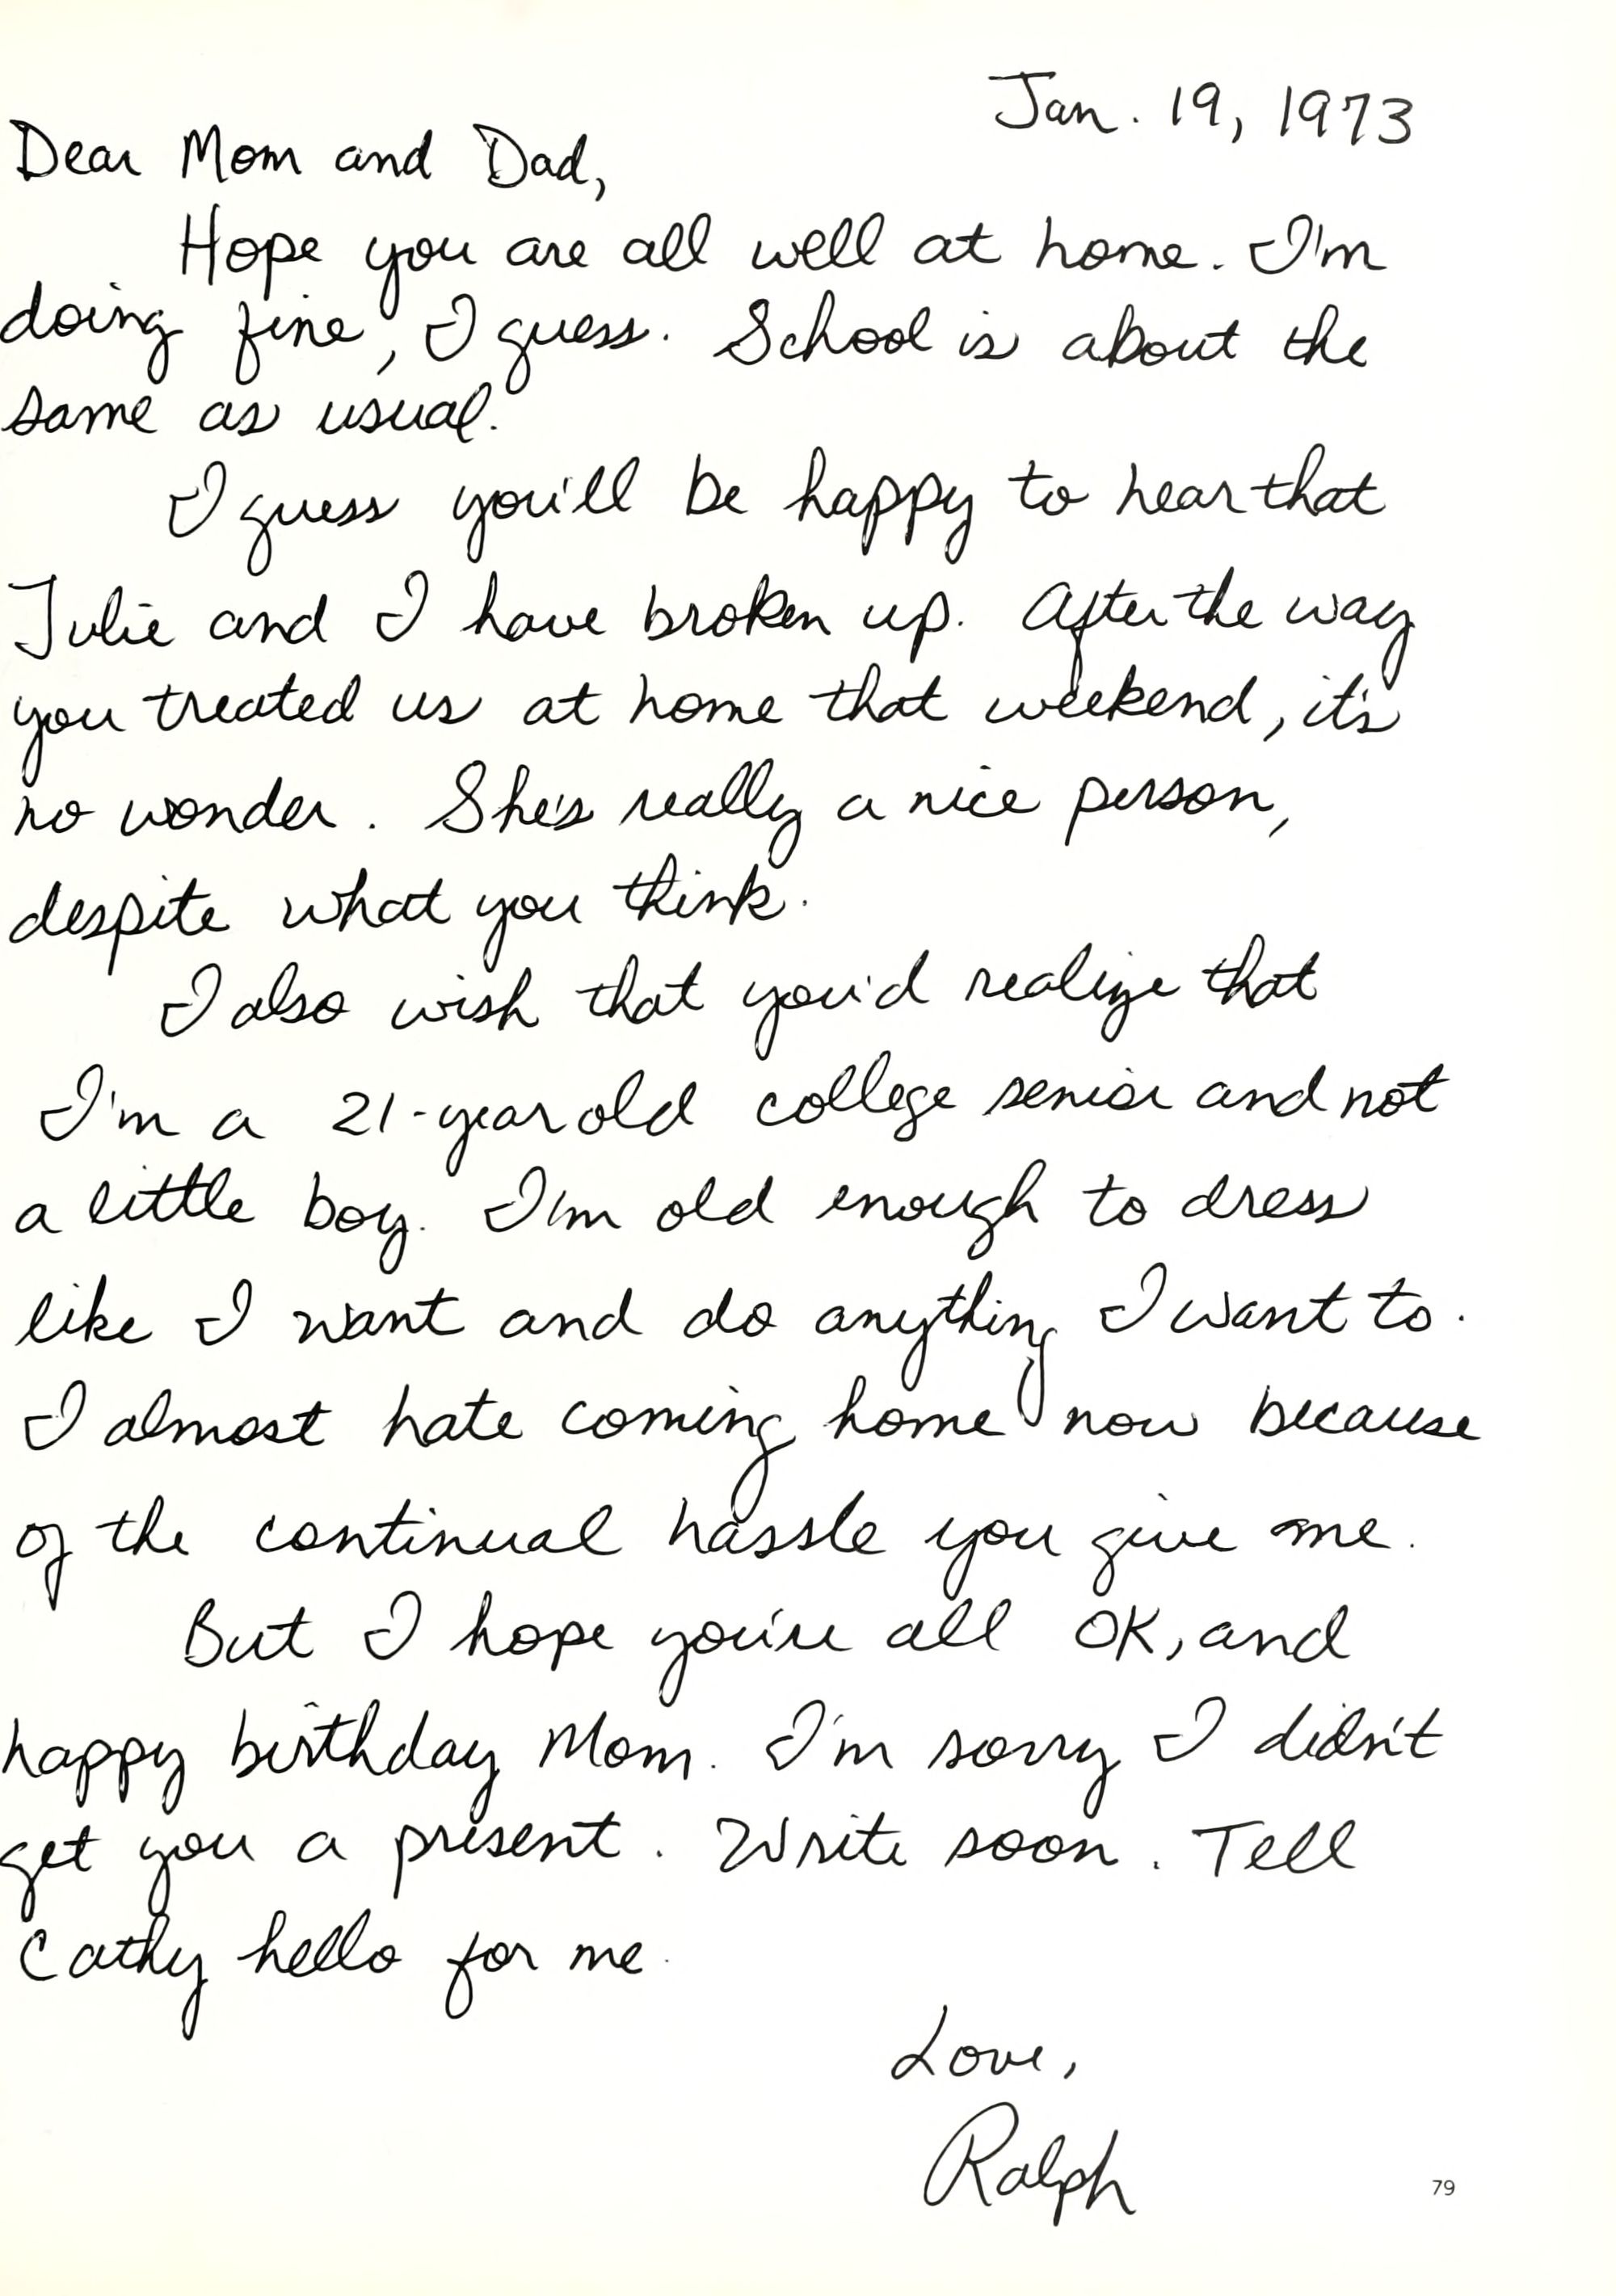 Jan. 19, 1973
Dear Mom and Dad,
Hope you are all well at home. I'm
doing fine, I guess. School is about the
same as usual.
I guess you'll be happy to hear that
Julie and I have broken up. After the way
you treated us at home that weekend, it's
no wonder. She's really a nice person,
despite what you think.
I also wish that you'd realize that
I'm a 21-year old college senior and not
a little boy. I'm old enough to dress
like I want and do anything I want to.
I almost hate coming home now because
of the continual hassle you give me.
But I hope you're all OK, and
happy birthday Mom. I'm sorry I didn't
get you a present. Write soon. Tell
Cathy hello for me.
Love,
Ralph
79